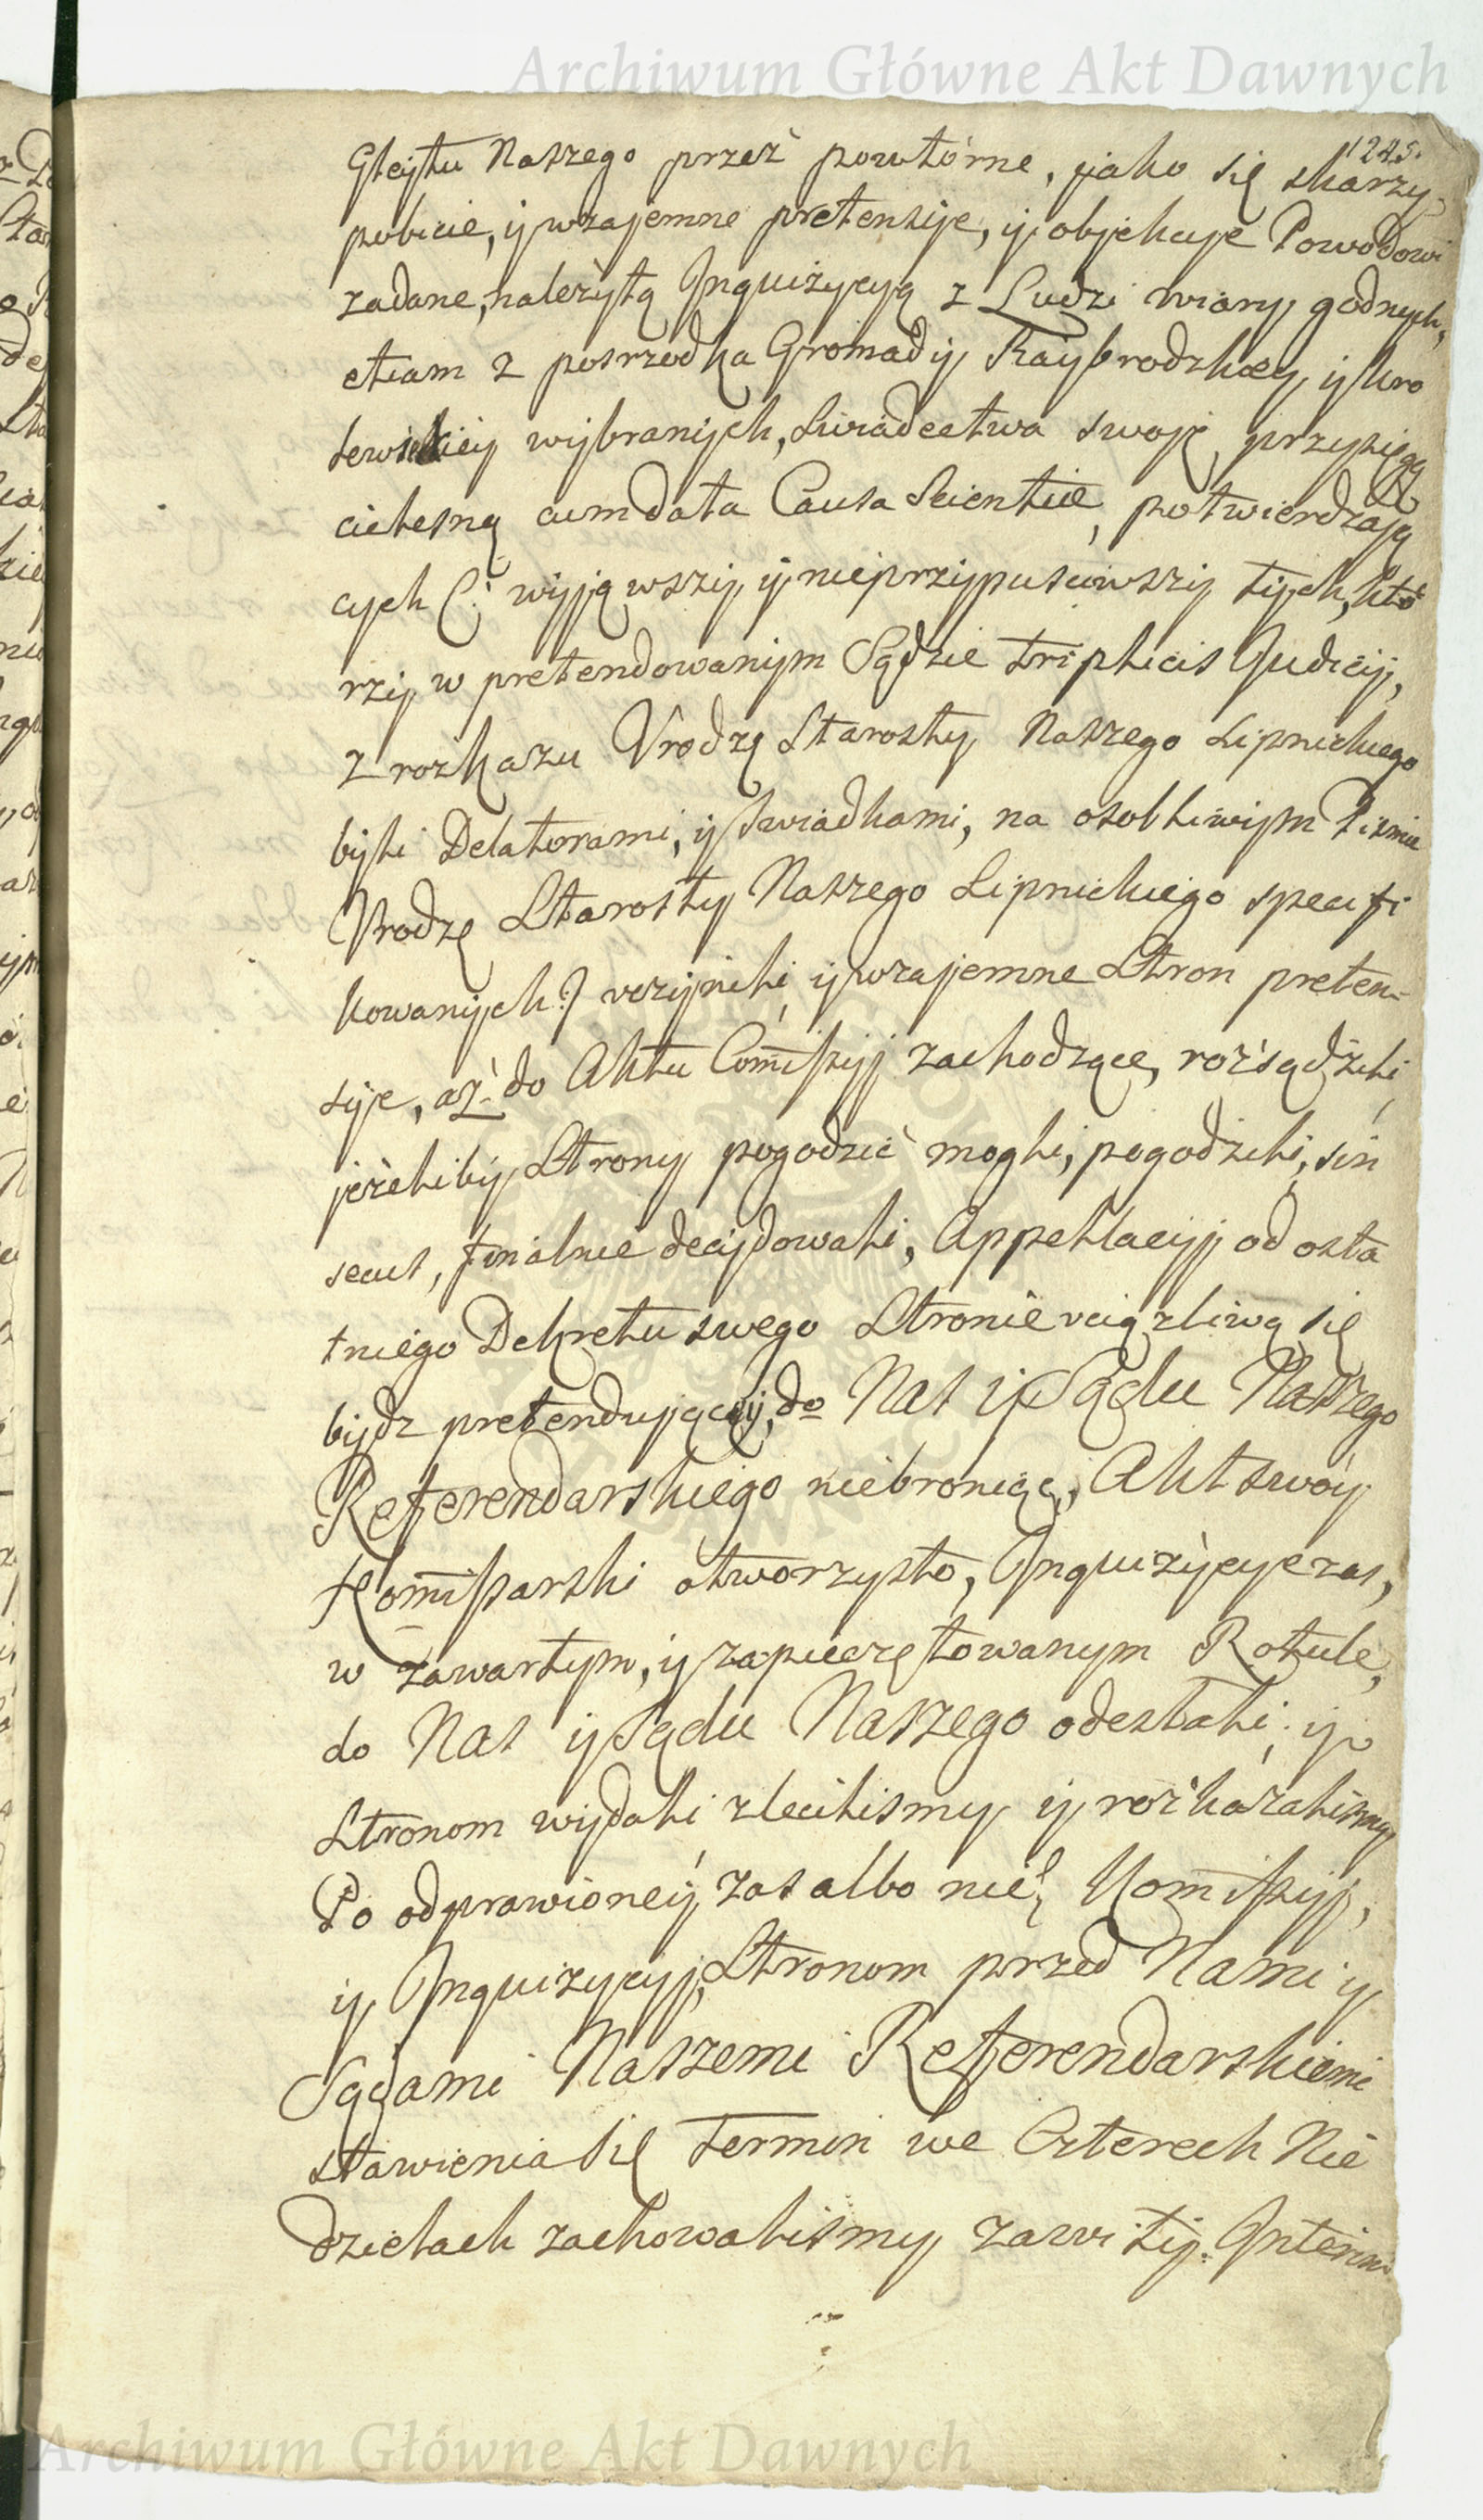 Archiwum Główne Akt Dawnych
1245.
Glejtu Naszego przez powtórne, jako się skarzy,
pobicie, y wzajemne pretensije, y objekcye Powodowi
zadane, nalezytą Inquizycyą z Ludzi wiary godnych,
etiam z posrzodka Gromady Raybrodzkiey, y Kro
lewskiey wybranych, swiadectwa swoje przysięgą
cielesną cum data Causa Scientiæ, potwierdzają
cych (: wyjąwszy y nieprzypusciwszy tych, kto
rzy w pretendowanym Sądzie triplicis Judicij,
z rozkazu Vrodzę Starosty Naszego Lipnickiego
byli Delatorami, y swiadkami, na osobliwym Pismie
Vrodzę Starosty Naszego Lipnickiego specifi
kowanych :) vczynili, y wzajemne Stron preten-
sije, az do Aktu Comissyj zachodzące, rozsądzili,
jezeliby Strony pogodzić mogli, pogodzili, sin
secus, finalnie decydowali, Appellacyj od osta
tniego Dekretu swego Stronie vciązliwą się
bydz pretendujący, do Nas y Sądu Naszego
Referendarskiego niebroniąc, Akt swoy
Komissarski otworzysto, Inquizycye zas,
w zawartym, y zapieczętowanym Rotule,
do Nas y Sądu Naszego odesłali, y
Stronom wydali zlecilismy y rozkazalismy
Po odprawioney zas albo nie Komissyj,
y Inquizycyj, Stronom przed Nami y
Sądami Naszemi Referendarskiemi
stawienia się Termin we Czterech Nie
dzielach zachowalismy zawity. Interim
Archiwum Główne Akt Dawnych